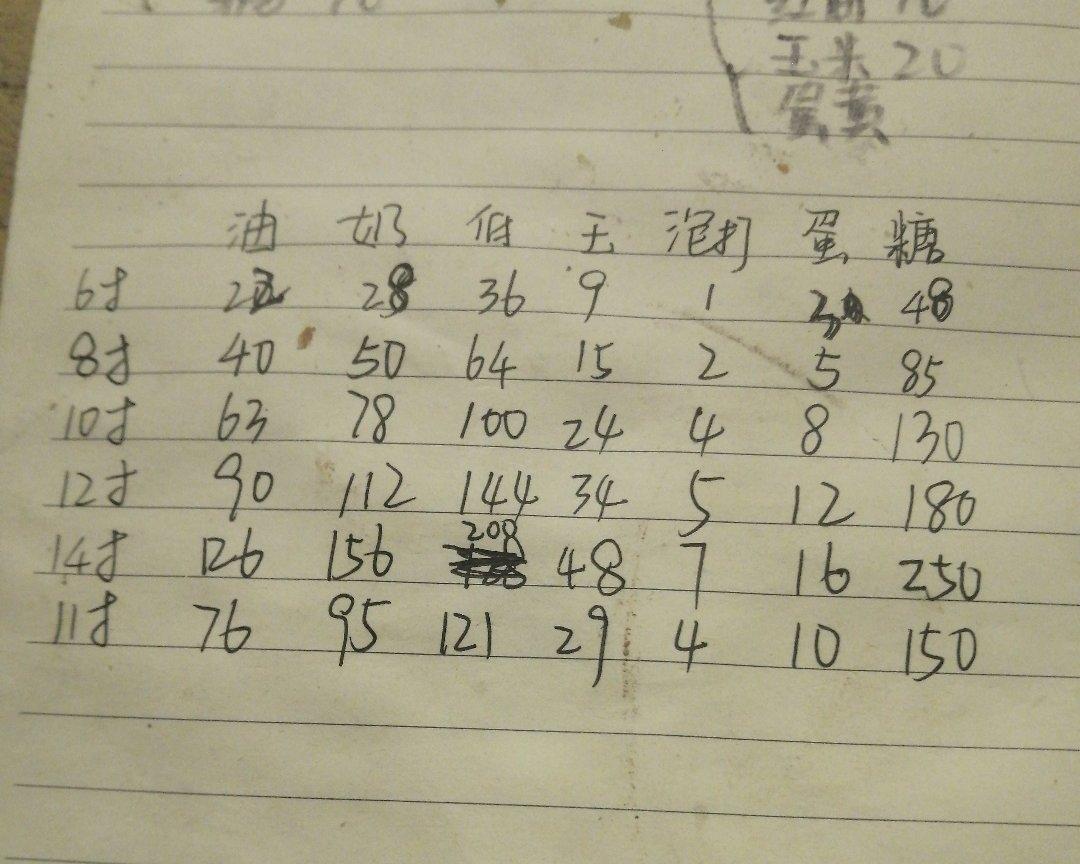 玉米 20
蛋黄
油 奶 低 玉 泡打 蛋 糖
6寸 22 28 36 9 1 3 48
8寸 40 50 64 15 2 5 85
10寸 63 78 100 24 4 8 130
12寸 90 112 144 34 5 12 180
14寸 126 156 208 48 7 16 250
11寸 76 95 121 29 4 10 150